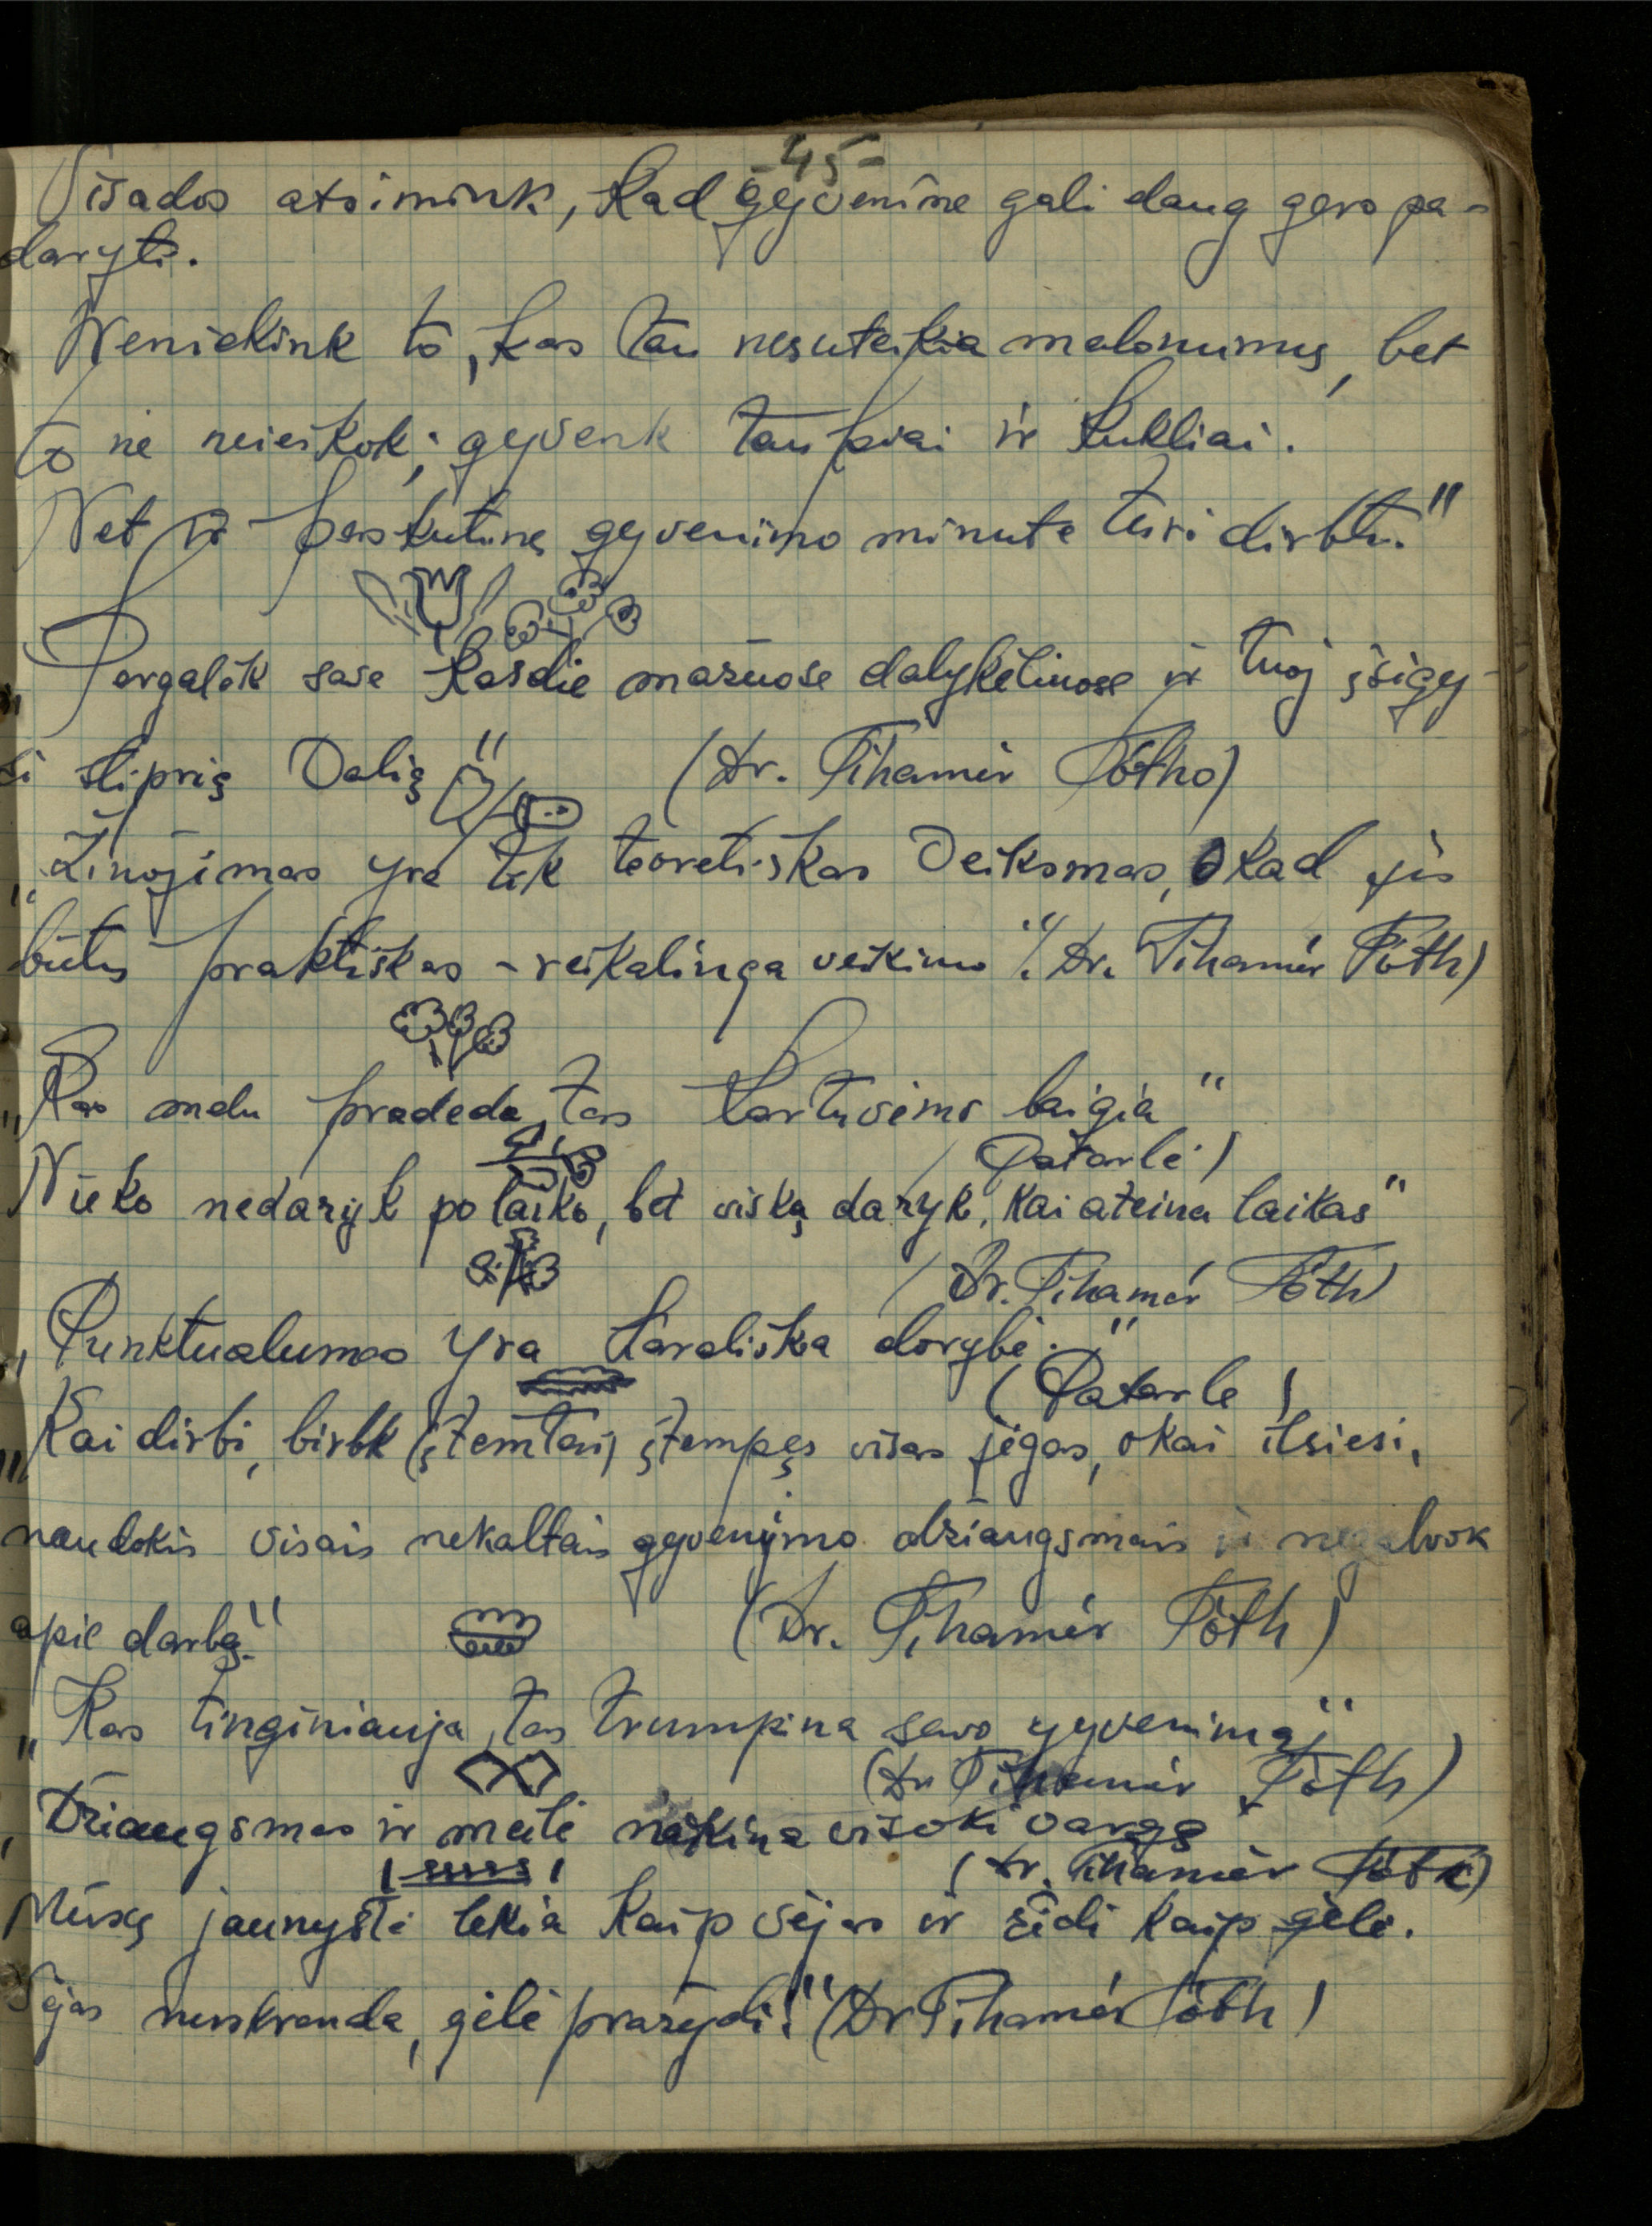 -45-
Visados atsimink, kad gyvenime gali daug gero pa-
daryti.
Neniekink to, kas tau nesuteikia malonumų, bet
to ne neieškok; gyvenk taupiai ir kukliai.
Net ir paskutinę gyvenimo minutę turi dirbti."
"Pergalėk save kasdie mažuose dalykėliuose ir tuoj įsigy-
si stiprią valią" (Dr. Tihamér Tótho)
"Žinojimas yra tik teoretiškas veiksmas, o kad jis
būtų praktiškas - reikalinga veikimo". (Dr. Tihamér Tóth)
"Kas melu pradeda, tas kartuvėms baigia"
(Patarlė)
Nieko nedaryk po laiko, bet viską daryk, kai ateina laikas"
(Dr. Tihamér Tóth)
"Punktualumas yra karališka dorybė."
(Patarle)
"Kai dirbi, birbk (įtemtai) įtempęs visas jėgas, o kai ilsiesi,
naudokis visais nekaltais gyvenimo džiaugsmais ir negalvok
apie darbą." (Dr. Tihamér Tóth)
"Kas tinginiauja, tas trumpina savo gyvenimą"
(Dr Tihamér Tóth)
"Džiaugsmas ir meilė naikina visokį vargą"
(Dr. Tihamér Tóth)
Mūsų jaunystė lekia kaip vėjas ir žydi kaip gėlė.
Vėjas nuskrenda, gėlė pražydi." (Dr Tihamér Tóth)